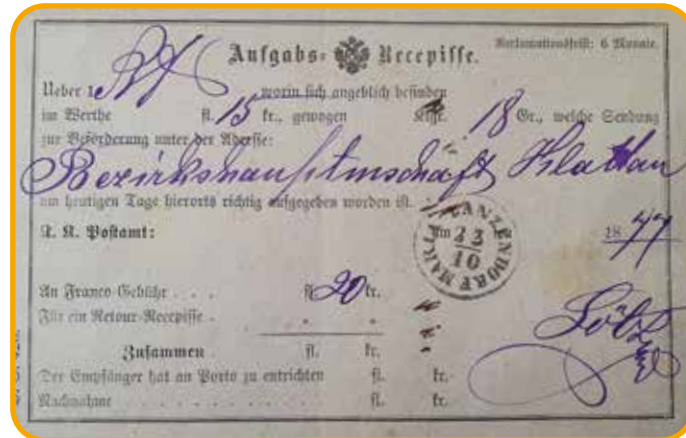 Aufgabs- Recepisse.
Reclamationsfrist: 6 Monate.
Ueber 1 worin sich angeblich befinden
im Werthe fl. 15 kr., gewogen Klgr. 18 Gr., welche Sendung
zur Beförderung unter der Adresse:
Bezirkshauptmschaft Klattau
am heutigen Tage hierorts richtig aufgegeben worden ist.
K. K. Postamt:
am 23/10
1877
An Franco-Gebühr . . . fl. 20 kr.
Für ein Retour-Recepisse . " "
Zusammen . fl. kr.
Der Empfänger hat an Porto zu entrichten fl. kr.
Nachnahme . . . . . . . . . . fl. kr.